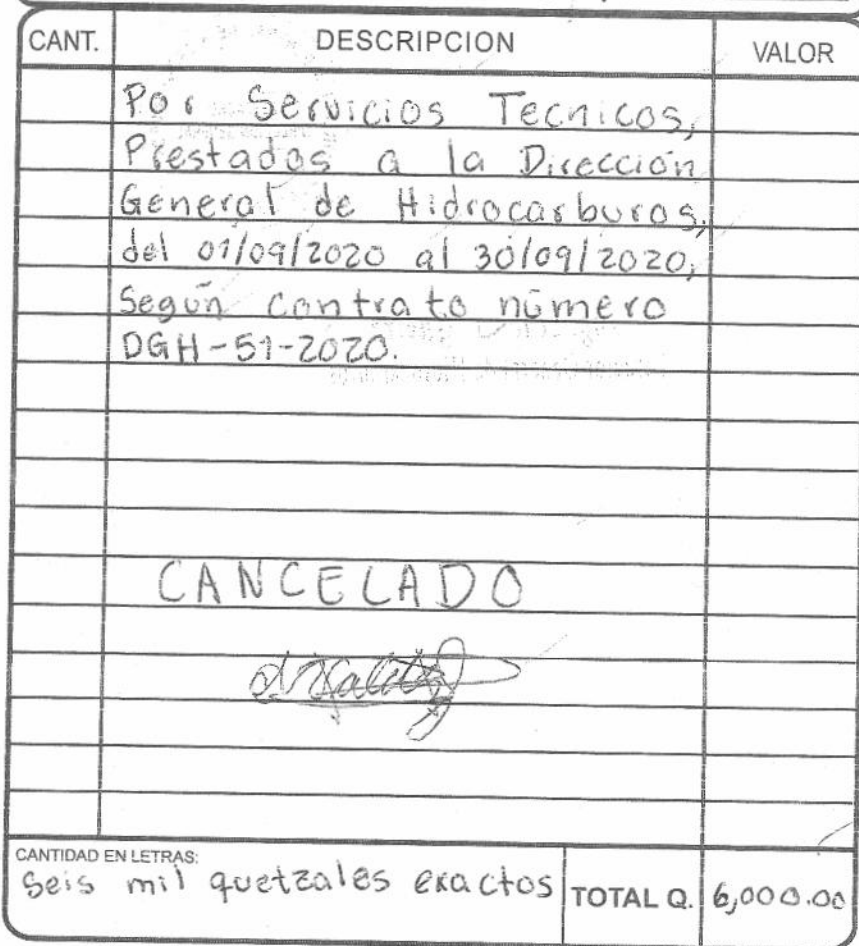 CANT. DESCRIPCION VALOR
Por Servicios Tecnicos,
Prestados a la Dirección
General de Hidrocarburos,
del 01/09/2020 al 30/09/2020,
Según contrato número
DGH-51-2020.
CANCELADO
CANTIDAD EN LETRAS:
Seis mil quetzales exactos TOTAL Q. 6,000.00